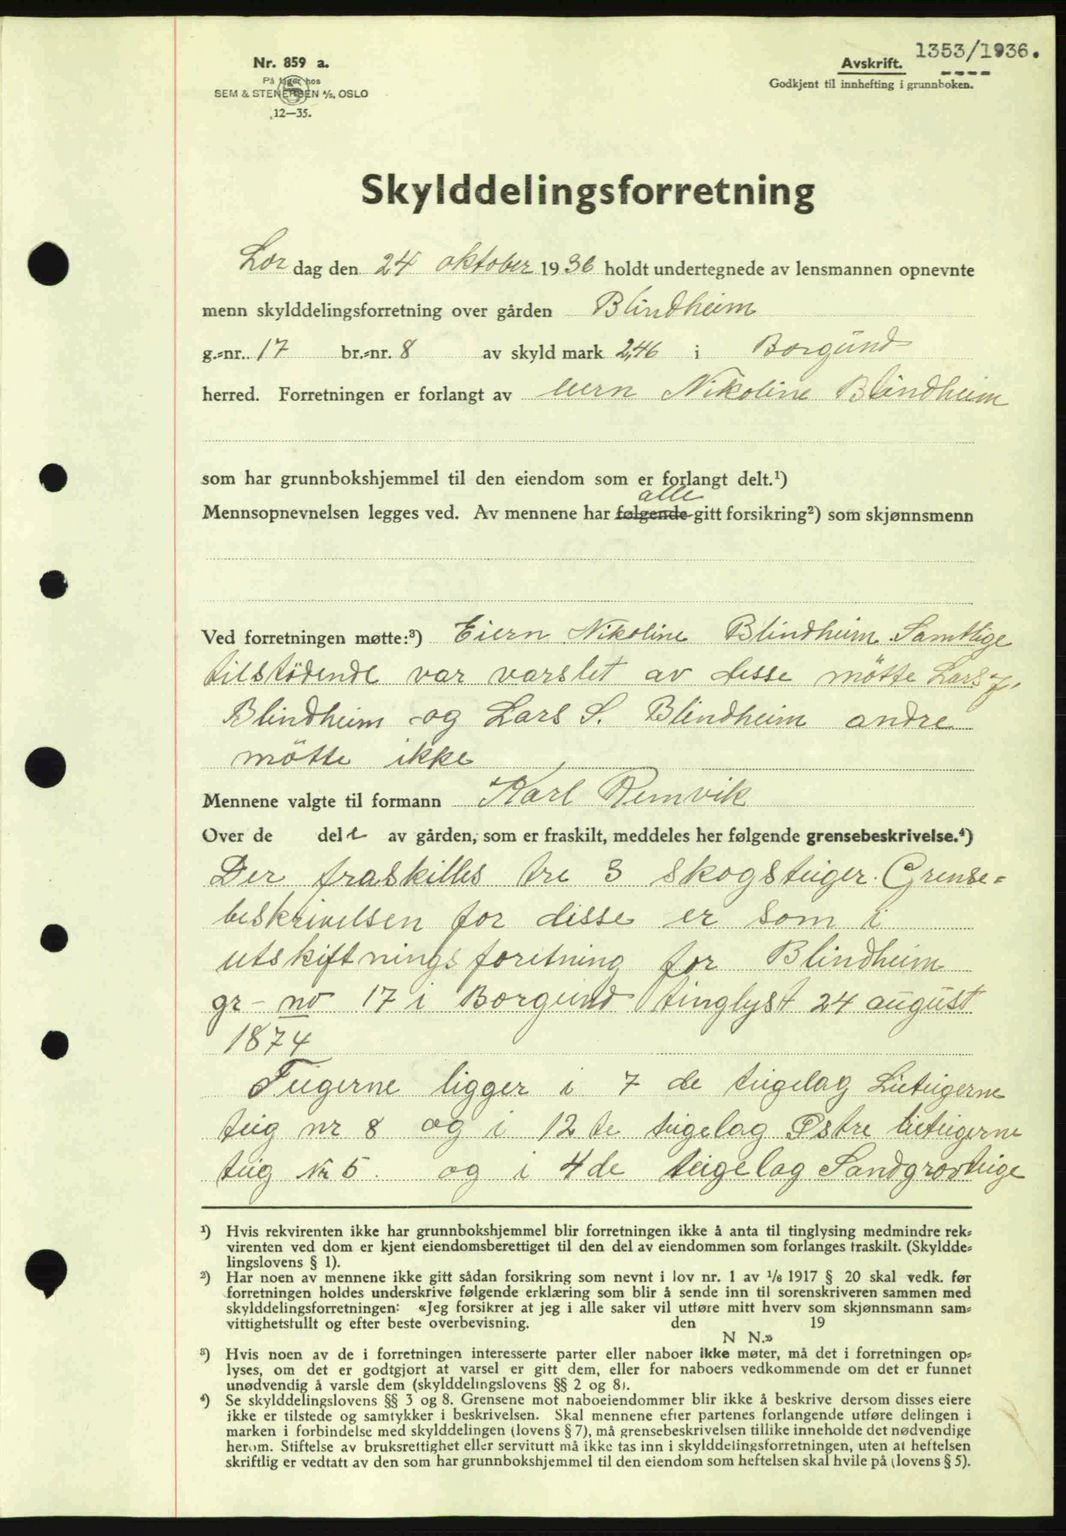 1353/1936.
Nr. 859 a.
På lager hos
SEM & STENERSEN A/S, OSLO
12—35.
Avskrift.
Godkjent til innhefting i grunnboken.
Skylddelingsforretning
Lør dag den 24 oktober 1936 holdt undertegnede av lensmannen opnevnte
menn skylddelingsforretning over gården Blindheim
g.=nr. 17 br.=nr. 8 av skyld mark 2,46 i Borgund
herred. Forretningen er forlangt av eiern Nikoline Blindheim
som har grunnbokshjemmel til den eiendom som er forlangt delt.¹)
alle
Mennsopnevnelsen legges ved. Av mennene har følgende gitt forsikring²) som skjønnsmenn
Ved forretningen møtte:³) Eiern Nikoline Blindheim. Samtlige
tilstødende var varslet av disse møtte Lars J.
Blindheim og Lars S. Blindheim andre
møtte ikke
Mennene valgte til formann Karl Remvik
Over de del e av gården, som er fraskilt, meddeles her følgende grensebeskrivelse.⁴)
Der fraskilles tre 3 skogsteiger. Grense=
beskrivelsen for disse er som i
utskiftningsforetning for Blindheim
gr - no 17 i Borgund tinglyst 24 august
1874
Teigerne ligger i 7 de teigelag Lieteigerne
teig nr 8 og i 12 te teigelag Østre lieteigerne
teig Nr 5. og i 4de teigelag Sandgrovteige
¹) Hvis rekvirenten ikke har grunnbokshjemmel blir forretningen ikke å anta til tinglysing medmindre rek=
virenten ved dom er kjent eiendomsberettiget til den del av eiendommen som forlanges fraskilt. (Skyldde=
lingslovens § 1).
²) Har noen av mennene ikke gitt sådan forsikring som nevnt i lov nr. 1 av 1/6 1917 § 20 skal vedk. før
forretningen holdes underskrive følgende erklæring som blir å sende inn til sorenskriveren sammen med
skylddelingsforretningen: «Jeg forsikrer at jeg i alle saker vil utføre mitt hverv som skjønnsmann sam=
vittighetsfullt og efter beste overbevisning. den 19
N N.»
³) Hvis noen av de i forretningen interesserte parter eller naboer ikke møter, må det i forretningen op=
lyses, om det er godtgjort at varsel er gitt dem, eller for naboers vedkommende om det er funnet
unødvendig å varsle dem (skylddelingslovens §§ 2 og 8).
⁴) Se skylddelingslovens §§ 3 og 8. Grensene mot naboeiendommer blir ikke å beskrive dersom disses eiere
ikke er tilstede og samtykker i beskrivelsen. Skal mennene efter partenes forlangende utføre delingen i
marken i forbindelse med skylddelingen (lovens § 7), må grensebeskrivelsen tillike inneholde det nødvendige
herom. Stiftelse av bruksrettighet eller servitutt må ikke tas inn i skylddelingsforretningen, uten at heftelsen
skriftlig er vedtatt av den som har grunnbokshjemmel til den eiendom som heftelsen skal hvile på (lovens § 5).